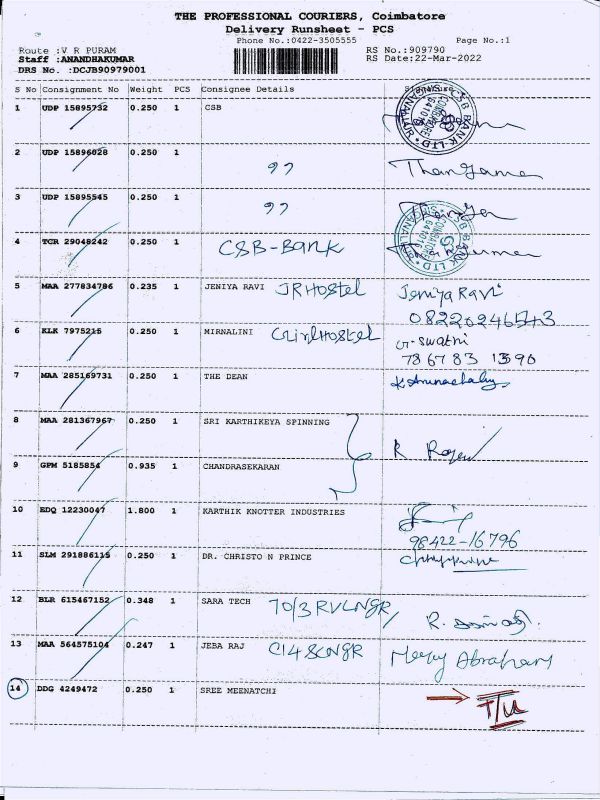 THE PROFESSIONAL COURIERS, Coimbatore
Delivery Runsheet - PCS
Phone No.:0422-3505555 Page No.:1
Route :V R PURAM RS No.:909790
Staff :ANANDHAKUMAR RS Date:22-Mar-2022
DRS No. :DCJB90979001
S No Consignment No Weight PCS Consignee Details
1 UDP 15895732 0.250 1 CSB
2 UDP 15896028 0.250 1 ,,
3 UDP 15895545 0.250 1 ,,
4 TCR 29048242 0.250 1 CSB-Bank
CSB BANK LTD
COIMBATORE
5 MAA 277834786 0.235 1 JENIYA RAVI JRHostel Jeniya Ravi
6 KLK 7975215 0.250 1 MIRNALINI Girl Hostel G. Swathi
78678 31390
7 MAA 285169731 0.250 1 THE DEAN
8 MAA 281367967 0.250 1 SRI KARTHIKEYA SPINNING
9 GPM 5185854 0.935 1 CHANDRASEKARAN
10 EDQ 12230047 1.800 1 KARTHIK KNOTTER INDUSTRIES
98422-16796
11 SLM 291886115 0.250 1 DR. CHRISTO N PRINCE
12 BLR 615467152 0.348 1 SARA TECH 70/3 RVLNGR
13 MAA 564575104 0.247 1 JEBA RAJ C14 SLNGR Mercy Abraham
14 DDG 4249472 0.250 1 SREE MEENATCHI T/U